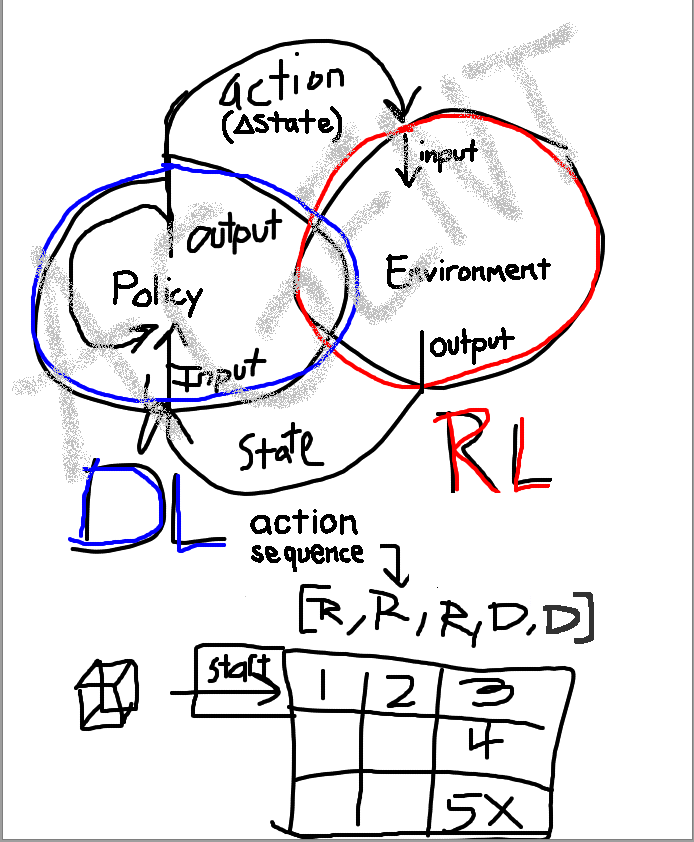 action
(Δstate)
input
output
Environment
Policy
output
Input
state
RL
DL
action
sequence
[R, R, R, D, D]
start
1 2 3
4
5X